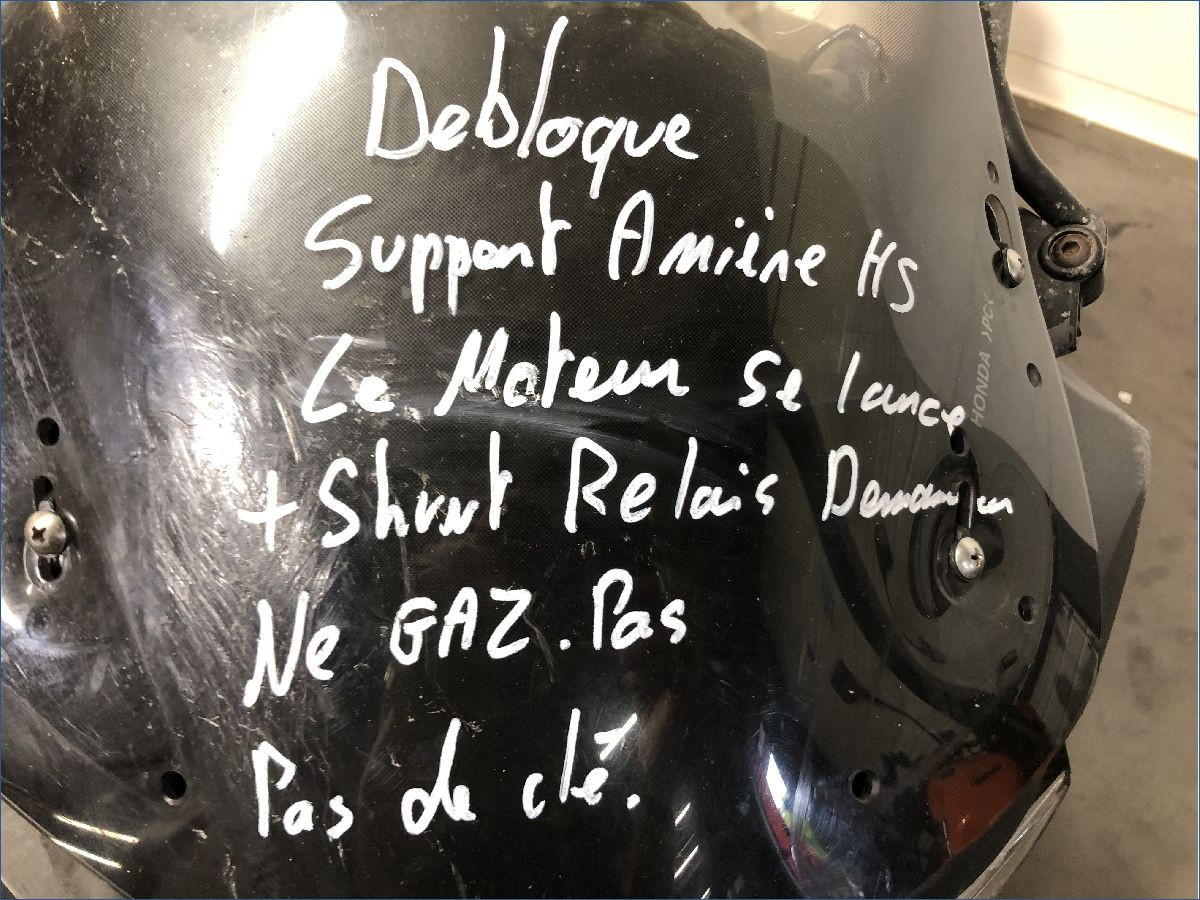 Debloque
Support Arrière HS
Le Moteur se lance
HONDA >PC<
+ Shunt Relais Demarreur
Ne GAZ. Pas
Pas de clé.